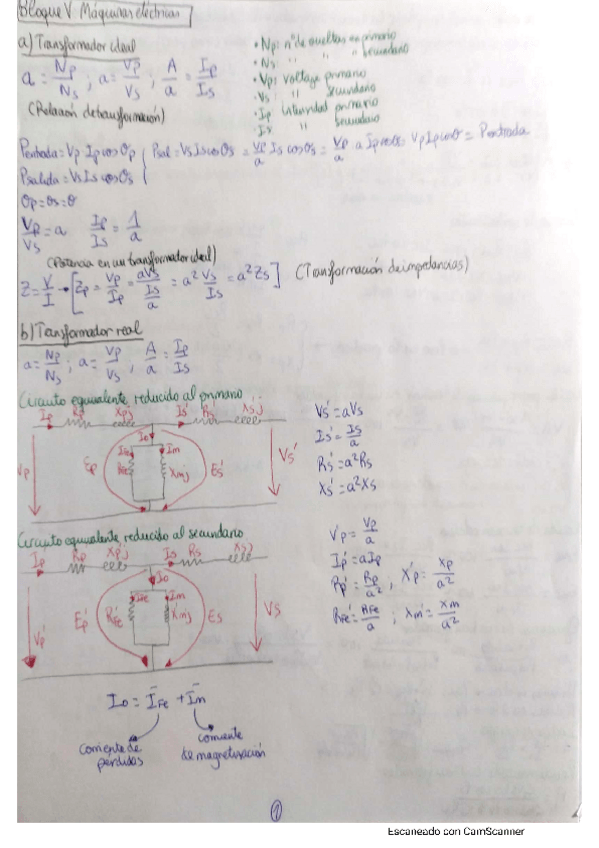 Bloque V Máquinas eléctricas
a) Transformador ideal
a = Np/Ns ; a = Vp/Vs ; A/a = Ip/Is
(Relación de transformación)
• Np: nº de vueltas en primario
• Ns: " " " secundario
• Vp: voltaje primario
Vs: " secundario
• Ip intensidad primario
Is " secundario
Pentrada = Vp Ip cos θp
Psalida = Vs Is cos θs
Psal = Vs Is cos θs = Vp/a Is cos θs = Vp/a a Ip cos θ = Vp Ip cos θ = Pentrada
θp = θs = θ
Vp/Vs = a Ip/Is = 1/a
(Potencia en un transformador ideal)
Z = V/I → [Zp = Vp/Ip = aVs/(Is/a) = a² Vs/Is = a² Zs] (Transformación de impedancias)
b) Transformador real
a = Np/Ns ; a = Vp/Vs ; A/a = Ip/Is
Circuito equivalente reducido al primario
Ip Rp Xpj Is' Rs' Xs'j
Io
IFe Im
Vp Ep RFe Xmj Es' Vs'
Vs' = aVs
Is' = Is/a
Rs' = a²Rs
Xs' = a²Xs
Circuito equivalente reducido al secundario
Ip' Rp' Xp'j Is Rs Xsj
Io
IFe Im
Vp' Ep' RFe' Xm'j Es Vs
V'p = Vp/a
Ip' = aIp
Rp' = Rp/a² , X'p = Xp/a²
RFe' = RFe/a ; Xm' = Xm/a²
Io = IFe + Im
corriente de pérdidas
corriente de magnetización
1
Escaneado con CamScanner